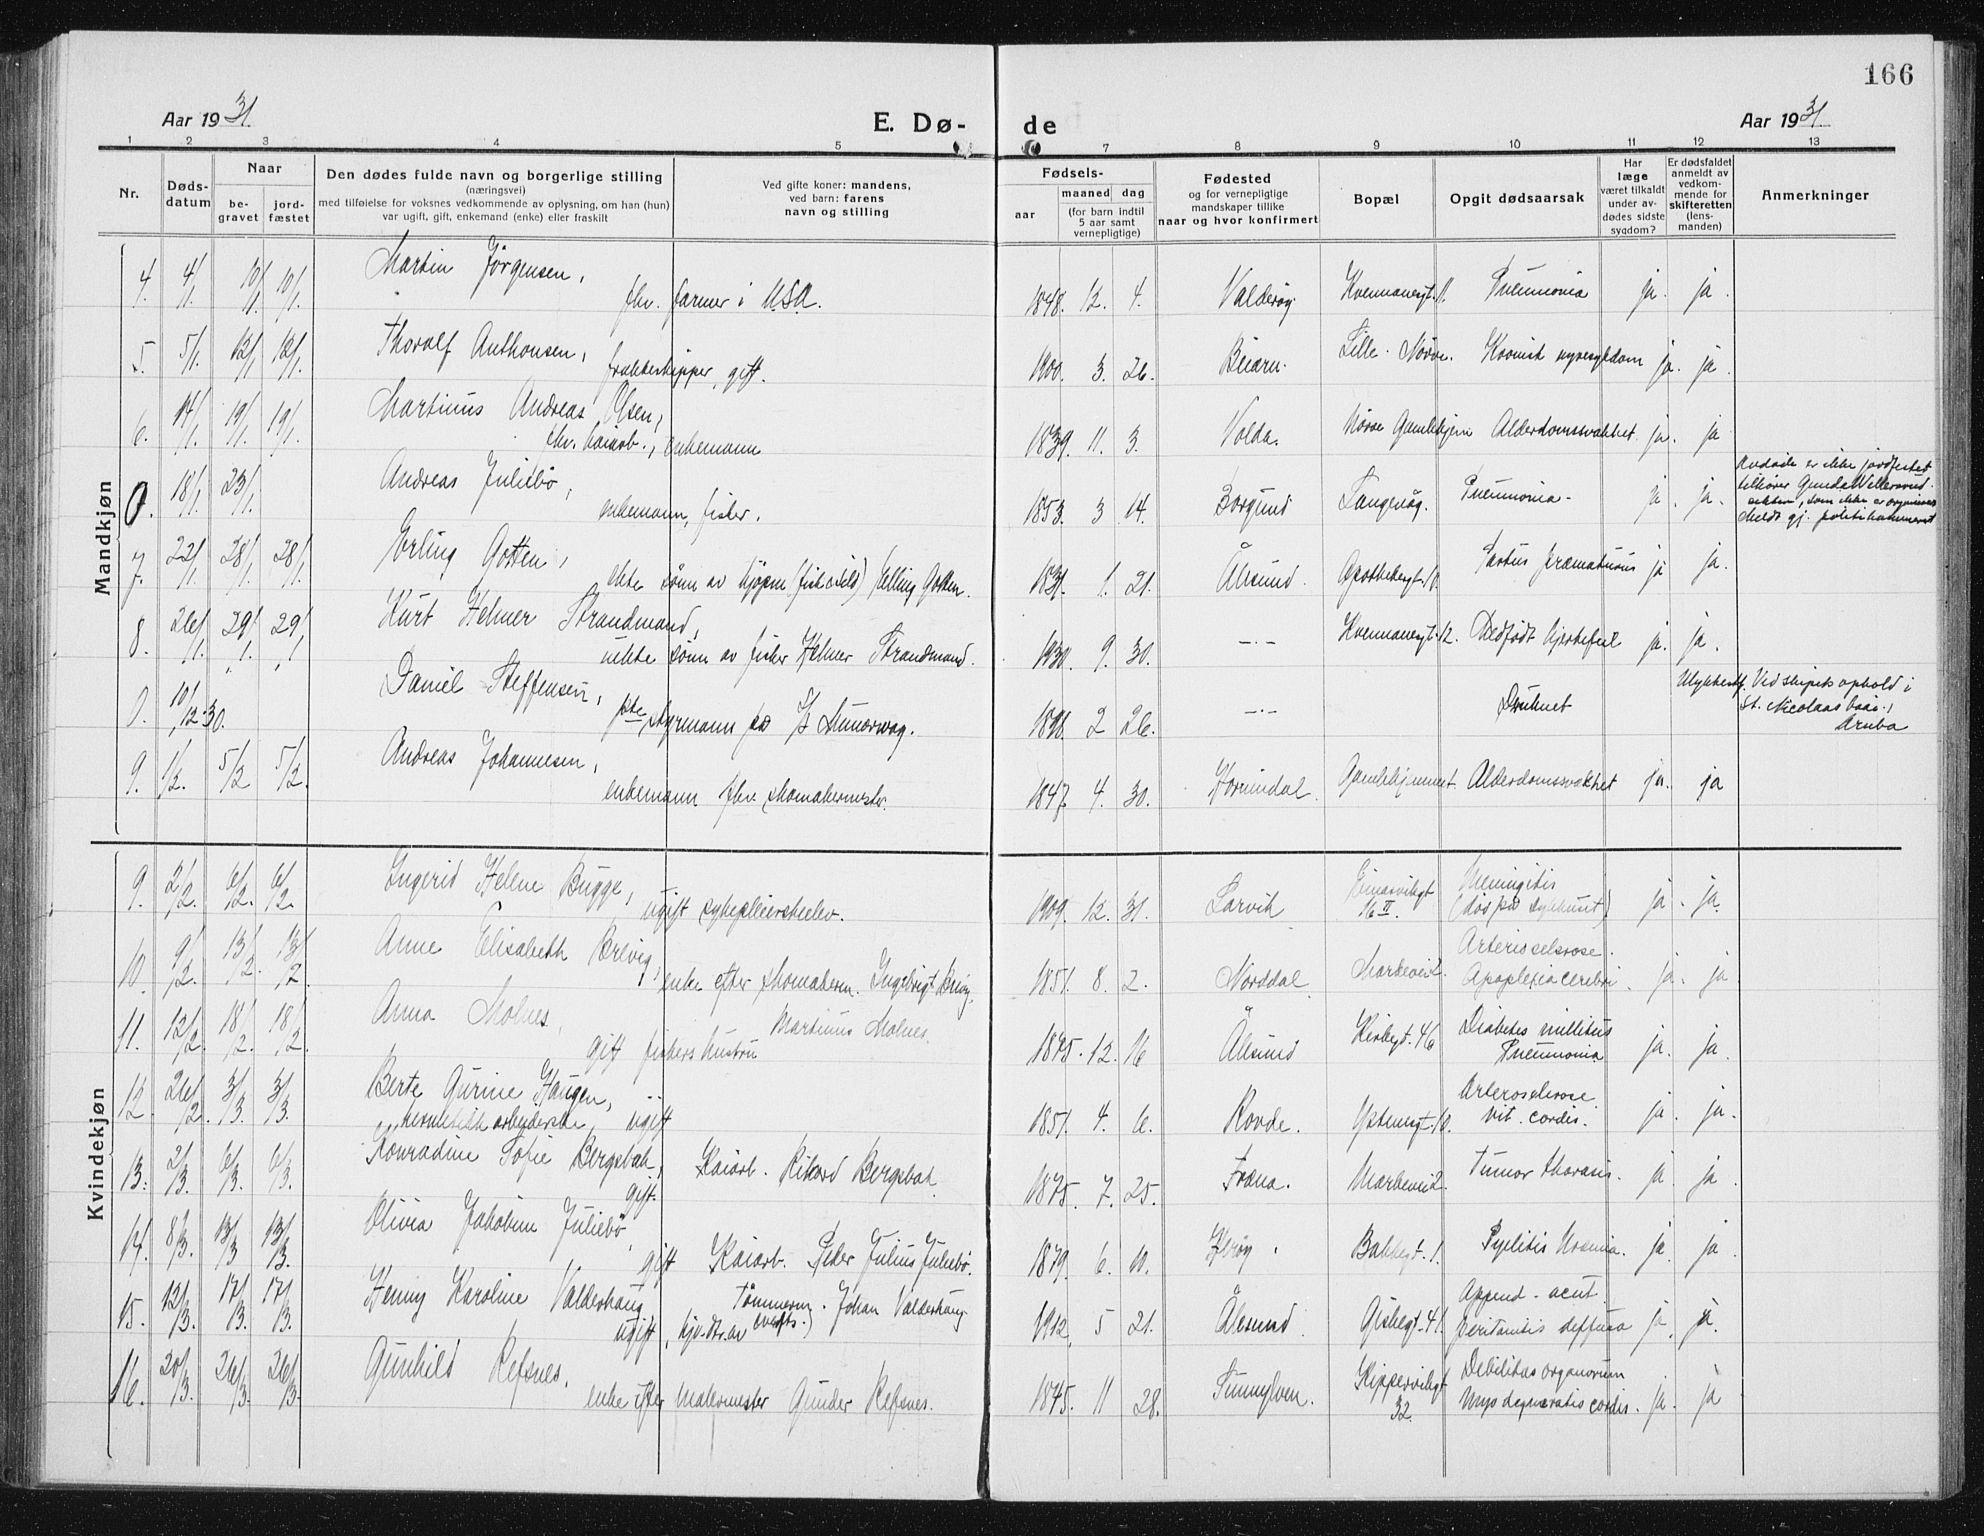 166
Aar 1931.
E. Dø-
de
Aar 1931.
1 2 3 4 5 7 8 9 10 11 12 13
Nr.
Døds-
datum
Naar
be-
gravet
jord-
fæstet
Den dødes fulde navn og borgerlige stilling
(næringsvei)
med tilføielse for voksnes vedkommende av oplysning, om han (hun)
var ugift, gift, enkemand (enke) eller fraskilt
Ved gifte koner: mandens,
ved barn: farens
navn og stilling
Fødsels-
aar
maaned dag
(for barn indtil
5 aar samt
vernepligtige)
Fødested
og for vernepligtige
mandskaper tillike
naar og hvor konfirmert
Bopæl
Opgit dødsaarsak
Har
læge
været tilkaldt
under av-
dødes sidste
sygdom?
Er dødsfaldet
anmeldt av
vedkom-
mende for
skifteretten
(lens-
manden)
Anmerkninger
Mandkjøn
4. 4/1 10/1 10/1 Martin Jørgensen,
fhv. farmer i U.S.A. 1848. 12. 4. Valderøy. Kvennanesgt. 11. Pneumonia ja. ja.
5. 5/1. 12/1 12/1. Thoralf Anthonsen,
frakteskipper, gift. 1900. 3. 26. Beiarn. Lille-Nørve. Kronisk nyresykdom ja. ja.
6. 14/1. 19/1. 19/1. Martinus Andreas Olsen,
fhv. kaiarb., enkemann 1839. 11. 3. Volda. Nørve Gamlehjem Alderdomssvakhet. ja. ja
0. 18/1. 23/1. Andreas Juliebø,
enkemann, fisker. 1853. 3 14. Borgund Langevåg. Pneumonia - ja ja.
Avdøde er ikke jordfestet
tilhører
sekten, som ikke er
Meldt gj. politikammeret
7. 22/1. 28/1. 28/1. Erling Gotten,
ekte sønn av kjøpm (fisk & sild) Elling Gotten. 1931. 1. 21. Ålesund. Apothekergt. 10. Partus præmaturus ja ja.
8. 26/1. 29/1. 29/1 Kurt Helmer Strandmand,
uekte sønn av fisker Helmer Strandmand. 1930. 9. 30. -"- Kvennanesgt. 12. Medfødt hjertefeil ja. ja.
0. 10/12.30. Daniel Steffensen,
1ste styrmann på 1898. 2 26. -"- Druknet Ulykkestilf. Ved skipets ophold i
St. Nicolaas baai,
Aruba
9. 1/2. 5/2 5/2. Andreas Johannesen,
enkemann fhv. skomakermester. 1847 4. 30. Hornindal. Gamlehjemmet. Alderdomssvakhet ja. ja
Kvindekjøn
9. 2/2. 6/2. 6/2. Ingerid Helene Bugge,
ugift sykepleierskeelev. 1909. 12. 31. Larvik Einarvikgt
16 II. Meningitis
(død på sykhuset) ja. ja.
10. 9/2. 13/2. 13/2 Anne Elisabeth Brevig,
enke efter skomakerm. Ingebrigt Brevig. 1851. 8. 2. Norddal Markevei 2. Arteriosclerose.
Apoplexia cerebri. ja. ja
11. 12/2. 18/2. 18/2. Anna Molnes,
gift fiskers hustru Martinus Molnes. 1875. 12. 16 Ålesund Kirkegt. 46 Diabetes millitus
Pneumonia ja. ja.
12. 26/2. 3/3. 3/3. Berte Gurine Haugen,
hermetikk arbeiderske, ugift 1851. 4. 6. Rovde. Ystenesgt. 10. Arterosclerose
vit. cordis. ja. ja.
13. 2/3. 6/3. 6/3. Konradine Sofie Bergsbak,
gift. Kaiarb. Rikard Bergsbak. 1875. 7. 25. Fræna. Markevei 2. Tumor thorasis. ja ja.
14. 8/3. 13/3 13/3. Olivia Jakobine Juliebø,
gift Kaiarb. Peder Julius Juliebø. 1879. 6. 10. Herøy. Bakkegt. 1. Pyelitis Uræmia. ja ja.
15. 12/3. 17/3. 17/3. Henny Karoline Valderhaug,
ugift, hjv. dtr. av Tømmerm. Johan Valderhaug 1912. 5 21. Ålesund. Gjskegt. 41. Append. acut.
peritonitis diffusa ja. ja.
16. 20/3. 26/3. 26/3. Gunhild Refsnes,
enke efter malermester Gunder Refsnes. 1845. 11 28. Sunnylven. Skippervikgt
32. Debilitas organorum
Myodegeneratio cordis. ja. ja